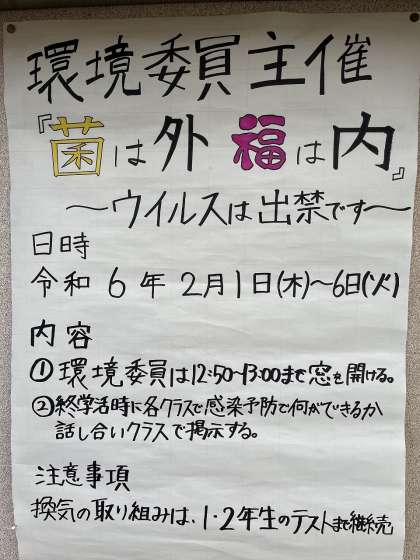 環境委員主催
『菌は外 福は内』
〜ウイルスは出禁です〜
日時
令和 6 年 2月1日(木)〜6日(火)
内容
①環境委員は12:50〜13:00まで窓を開ける。
②終学活時に各クラスで感染予防で何ができるか
話し合いクラスで掲示する。
注意事項
換気の取り組みは、1・2年生のテストまで継続